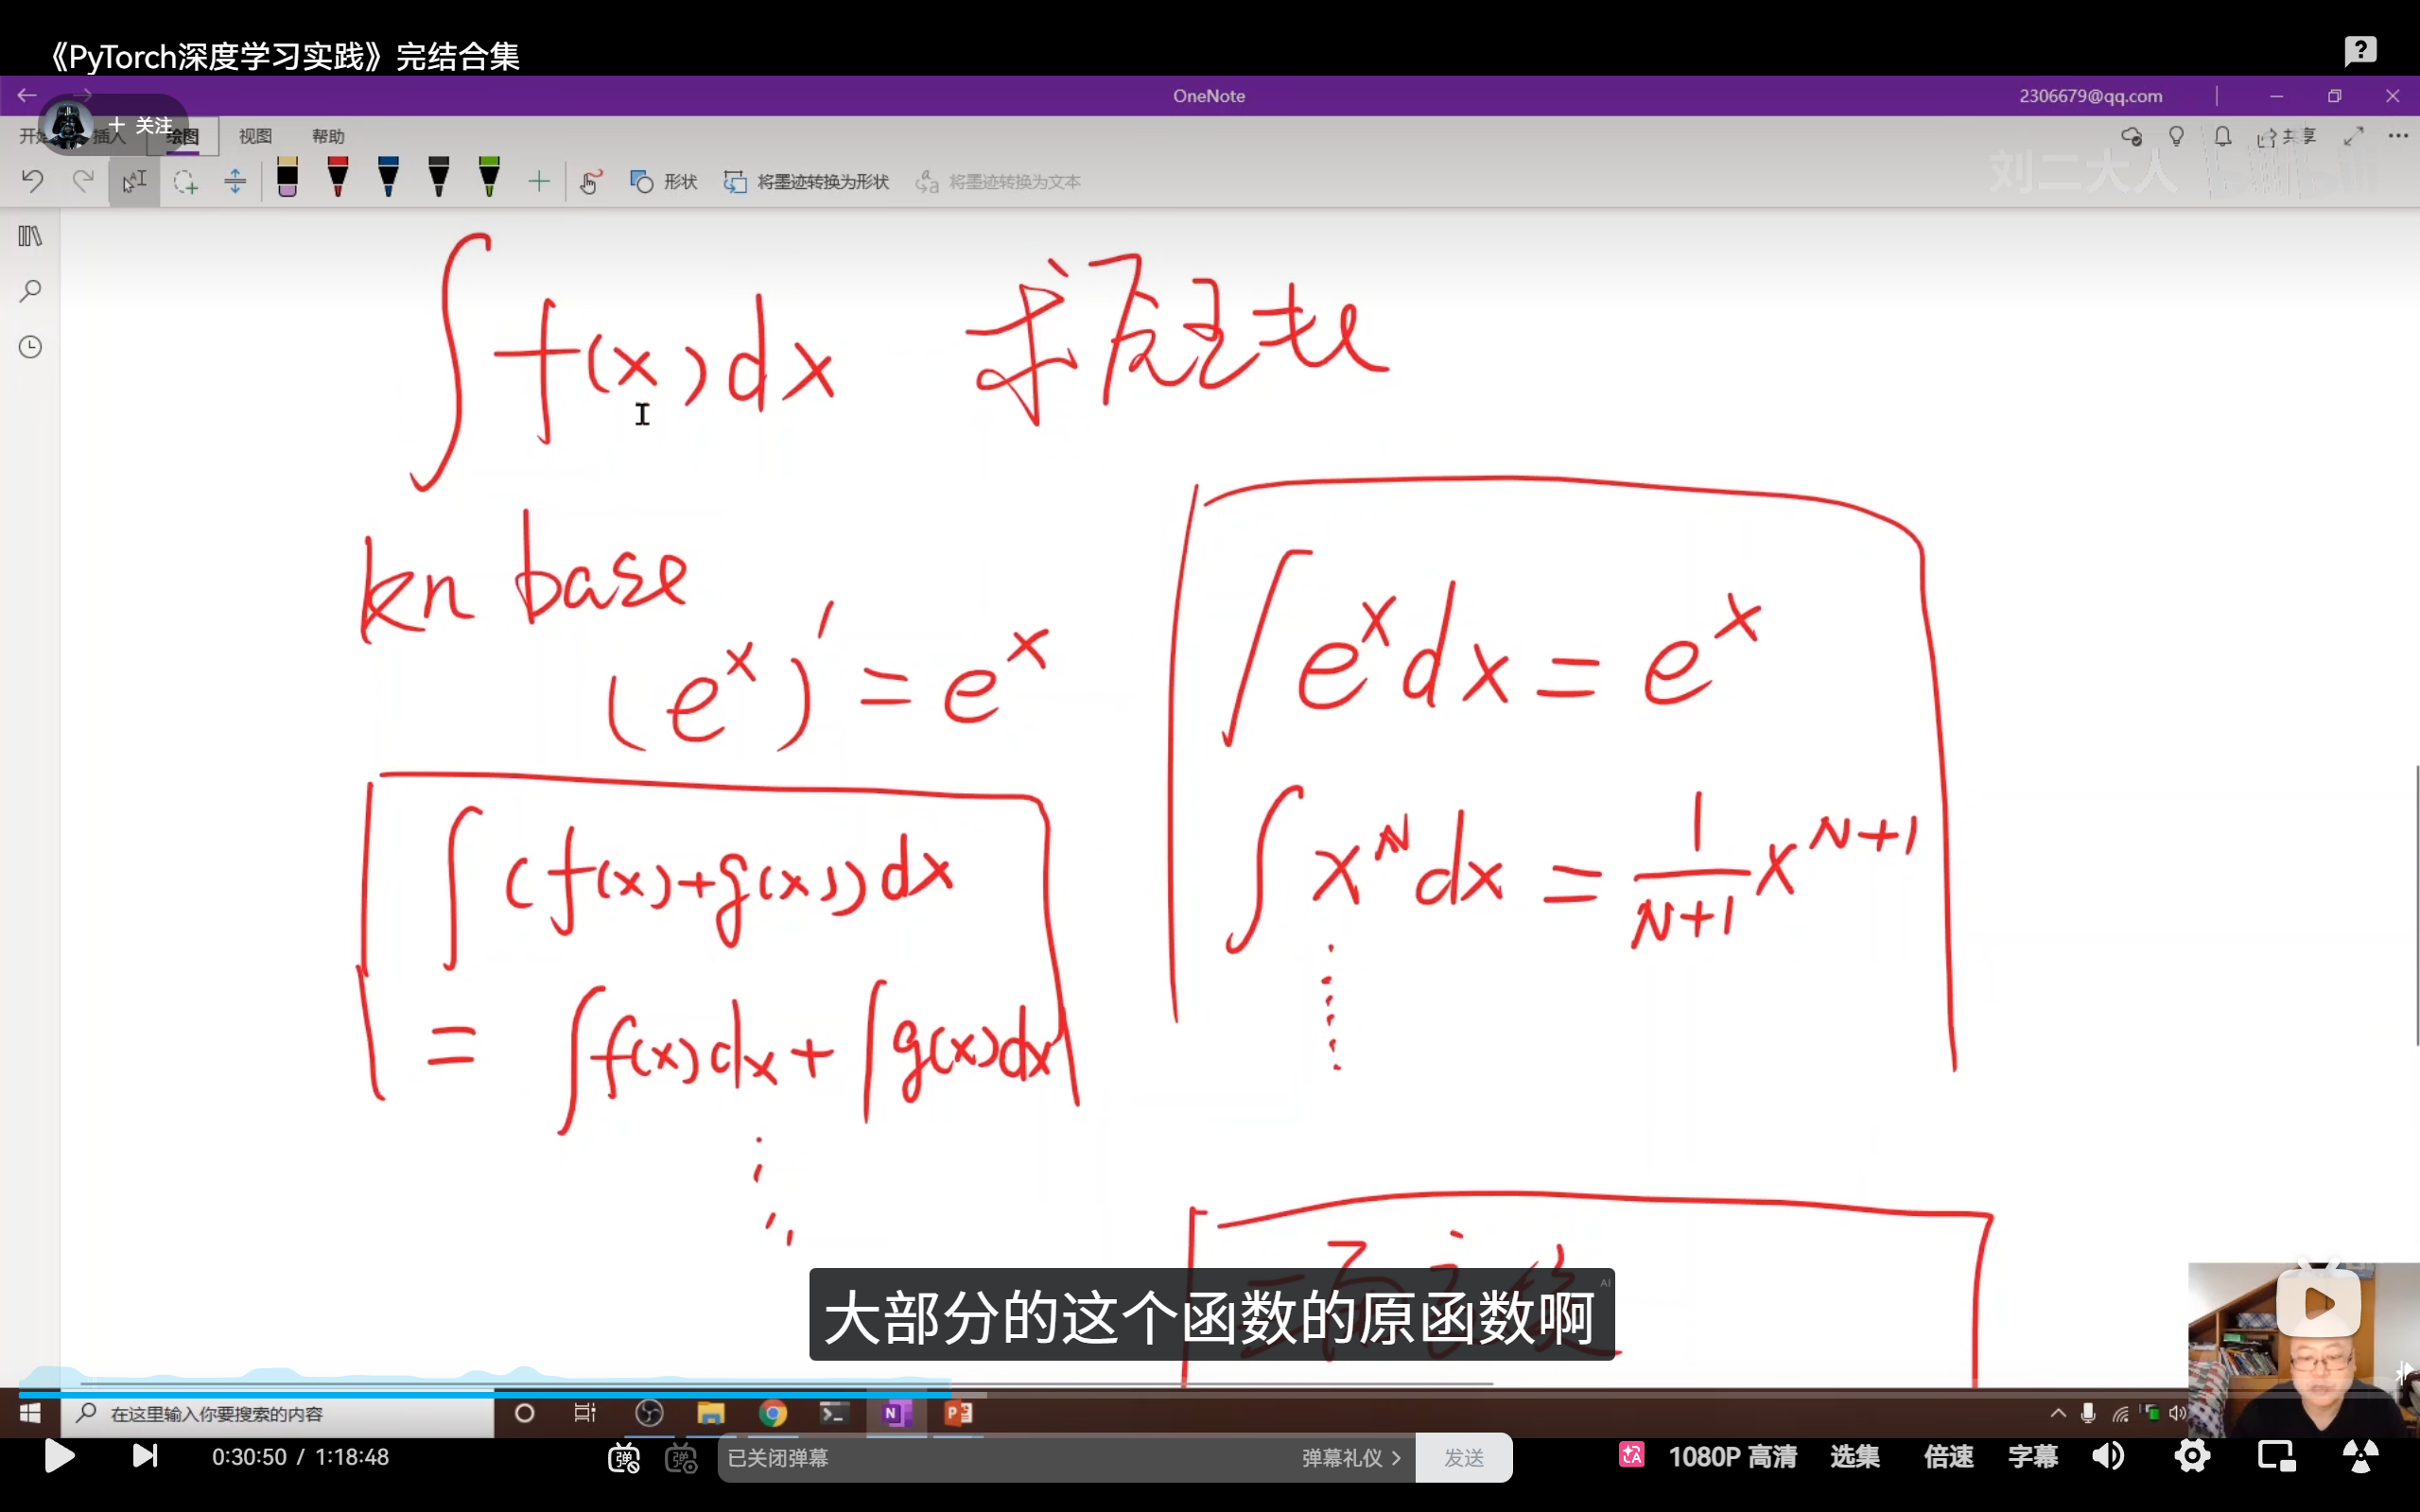 《PyTorch深度学习实践》完结合集
OneNote
2306679@qq.com
+ 关注
开始 插入 绘图 视图 帮助
共享
形状 将墨迹转换为形状 将墨迹转换为文本
刘二大人 bilibili
∫ f(x) dx 求原函数
kn base
(e^x)' = e^x
∫ e^x dx = e^x
∫ x^N dx = 1/(N+1) x^(N+1)
∫ (f(x)+g(x)) dx
= ∫ f(x) dx + ∫ g(x) dx
大部分的这个函数的原函数啊
AI
在这里输入你要搜索的内容
0:30:50 / 1:18:48
已关闭弹幕
弹幕礼仪 >
发送
1080P 高清 选集 倍速 字幕